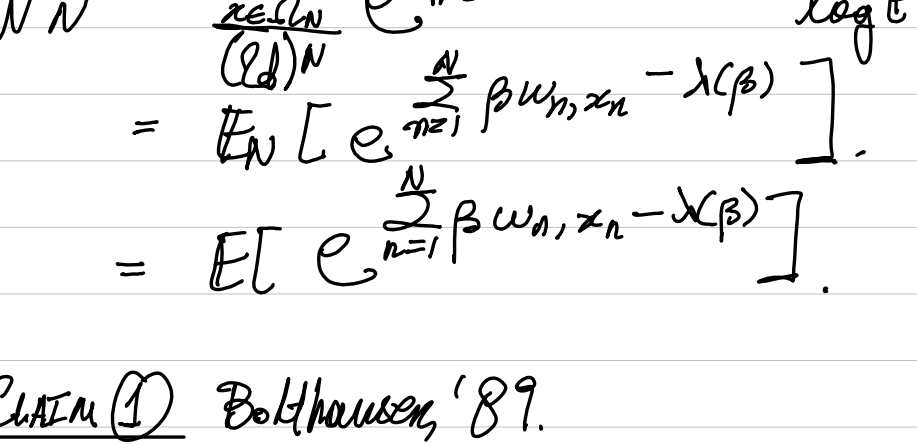 N N x∈Ω_N e log
(2d)^N
= E_N [ e^{∑_{n=1}^{N} β ω_{n, x_n} − λ(β)} ].
= E[ e^{∑_{n=1}^{N} β ω_{n, x_n} − λ(β)} ].
CLAIM ① Bolthausen, '89.